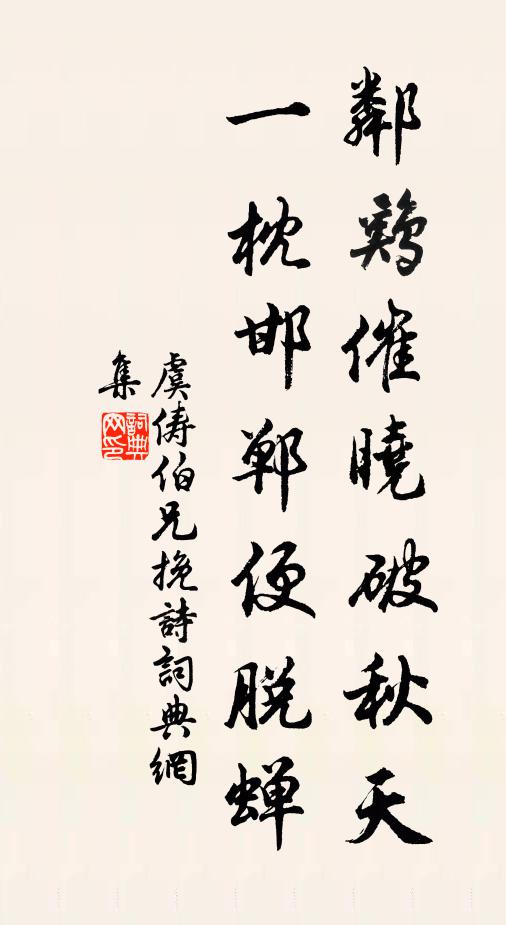 鄰鷄催曉破秋天
一枕邯鄲便脫蟬
虞儔伯兄挽詩詞典網
集
詞典
网印